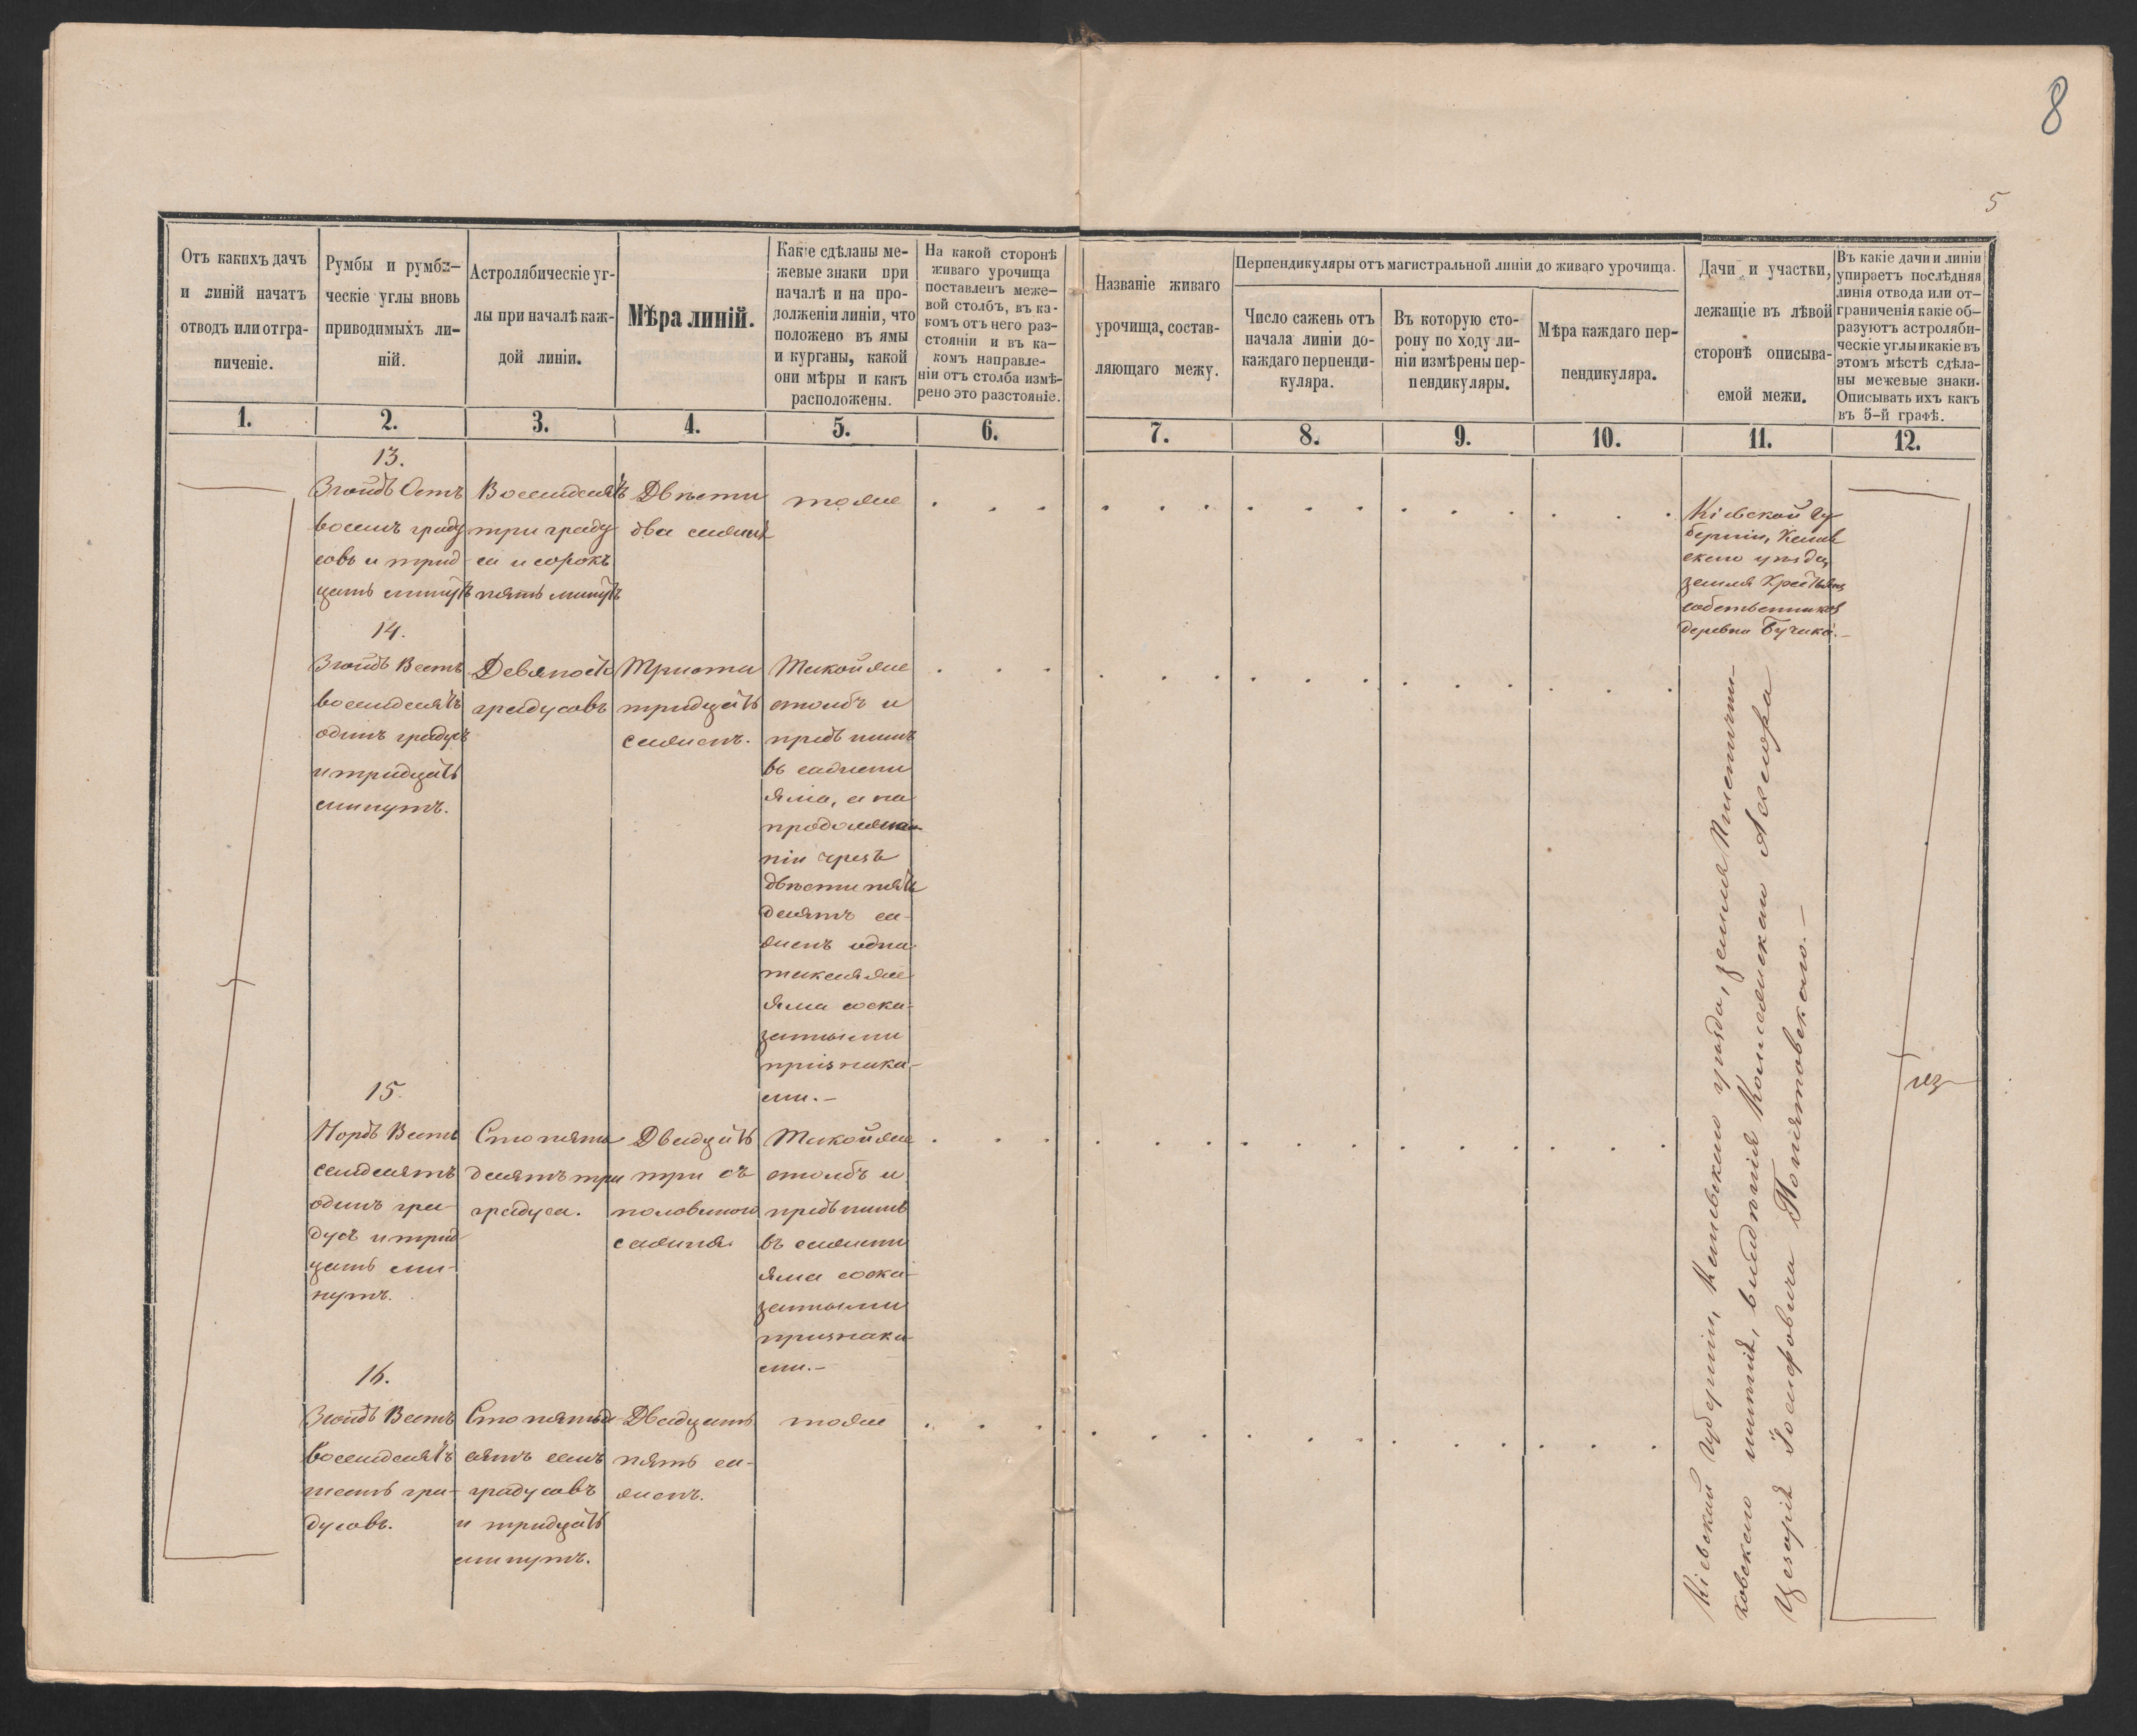 8
5
Отъ какихъ дачъ
и линій начатъ
отводъ или отгра-
ниченіе.
Румбы и румби-
ческіе углы вновь
приводимыхъ ли-
ній.
Астролябическіе уг-
лы при началѣ каж-
дой линіи.
Мѣра линій.
Какіе сдѣланы ме-
жевые знаки при
началѣ и на про-
долженіи линіи, что
положено въ ямы
и курганы, какой
они мѣры и какъ
расположены.
На какой сторонѣ
живаго урочища
поставленъ меже-
вой столбъ, въ ка-
комъ отъ него раз-
стояніи и въ ка-
комъ направле-
ніи отъ столба измѣ-
рено это разстояніе.
Названіе живаго
урочища, состав-
ляющаго межу.
Перпендикуляры отъ магистральной линіи до живаго урочища.
Число сажень отъ
начала линіи до-
каждаго перпенди-
куляра.
Въ которую сто-
рону по ходу ли-
ніи измѣрены пер-
пендикуляры.
Мѣра каждаго пер-
пендикуляра.
Дачи и участки,
лежащіе въ лѣвой
сторонѣ описыва-
емой межи.
Въ какіе дачи и линіи
упираетъ послѣдняя
линія отвода или от-
граниченія какіе об-
разуютъ астроляби-
ческіе углы и какіе въ
этомъ мѣстѣ сдѣла-
ны межевые знаки.
Описывать ихъ какъ
въ 5-й графѣ.
1. 2. 3. 4. 5. 6. 7. 8. 9. 10. 11. 12.
13.
Зюйдъ Остъ
восемь граду
совъ и трид
цать минутъ
Восемдесятъ
три граду
са и сорокъ
пять минутъ
Двѣсти
два сажня
тоже
Кіевской Гу
берніи, Канев
скаго уѣзда,
земля Крестьянъ
собственниковъ
деревни Бучака.-
14.
Зюйдъ Вестъ
восемдесятъ
одинъ градусъ
и тридцать
минутъ.
Девяносто
градусовъ
Триста
тридцать
сажень.
Такой же
столбъ и
предъ нимъ
въ сажени
яма, а на
продолже
ніи чрезъ
двѣсти пять
десятъ са-
жень одна
такая же
яма сока-
занными
признака-
ми.-
15.
Нордъ Вестъ
семдесятъ
одинъ гра-
дусъ и трид
цать ми-
нутъ.
Сто пять
десятъ три
градуса.
Двадцать
три съ
половиною
сажня.
Такой же
столбъ и
предъ нимъ
въ сажени
яма сока-
занными
признака
ми.-
16.
Зюйдъ Вестъ
восемдесятъ
шесть гра-
дусовъ.
Сто пятьде
сятъ семь
градусовъ
и тридцать
минутъ.
Двадцать
пять са-
жень.
тоже
Кіевской Губерніи, Каневскаго уѣзда, земля
ховскаго имѣнія, владѣнія Коллежскаго Асесора
Цезарія Іосифовича Понятовскаго.-